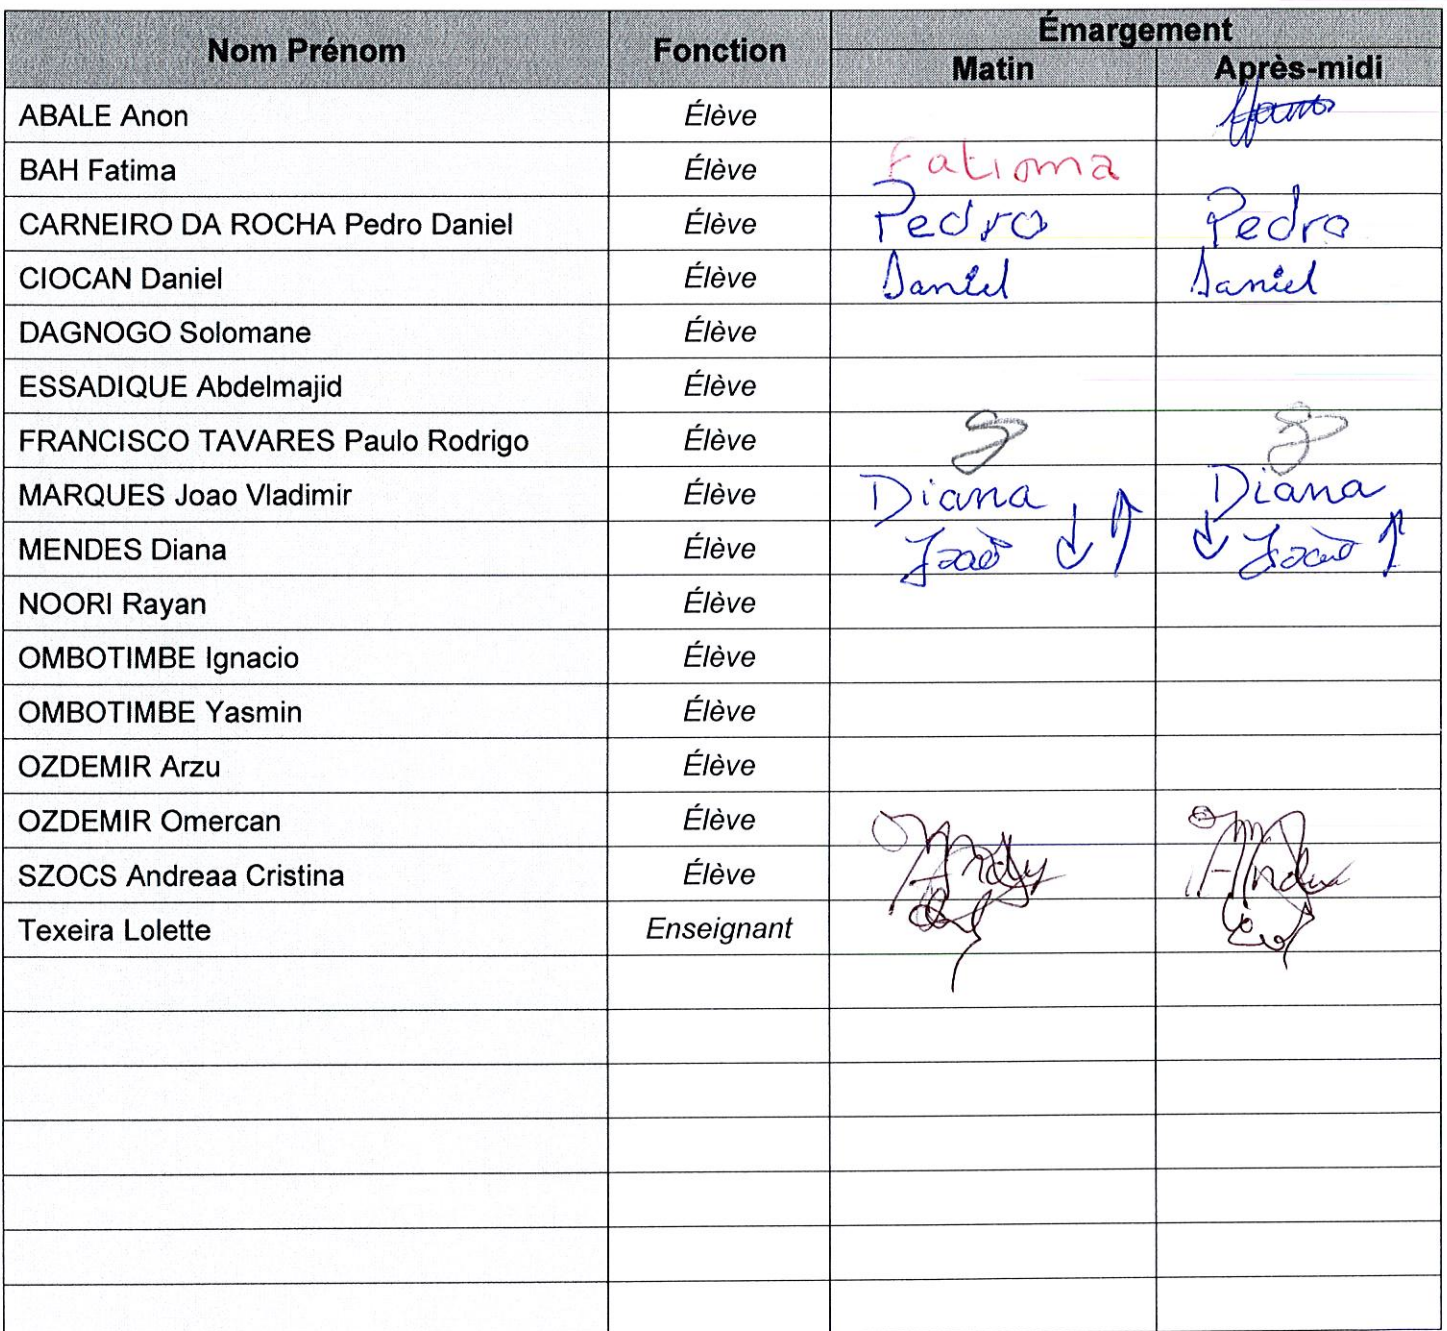 Nom Prénom Fonction Émargement
Matin Après-midi
ABALE Anon Élève
BAH Fatima Élève Fatioma
CARNEIRO DA ROCHA Pedro Daniel Élève Pedro Pedro
CIOCAN Daniel Élève Daniel Daniel
DAGNOGO Solomane Élève
ESSADIQUE Abdelmajid Élève
FRANCISCO TAVARES Paulo Rodrigo Élève
MARQUES Joao Vladimir Élève Diana Diana
MENDES Diana Élève Joao ↓ ↑ ↓ Joao ↑
NOORI Rayan Élève
OMBOTIMBE Ignacio Élève
OMBOTIMBE Yasmin Élève
OZDEMIR Arzu Élève
OZDEMIR Omercan Élève
SZOCS Andreaa Cristina Élève
Texeira Lolette Enseignant